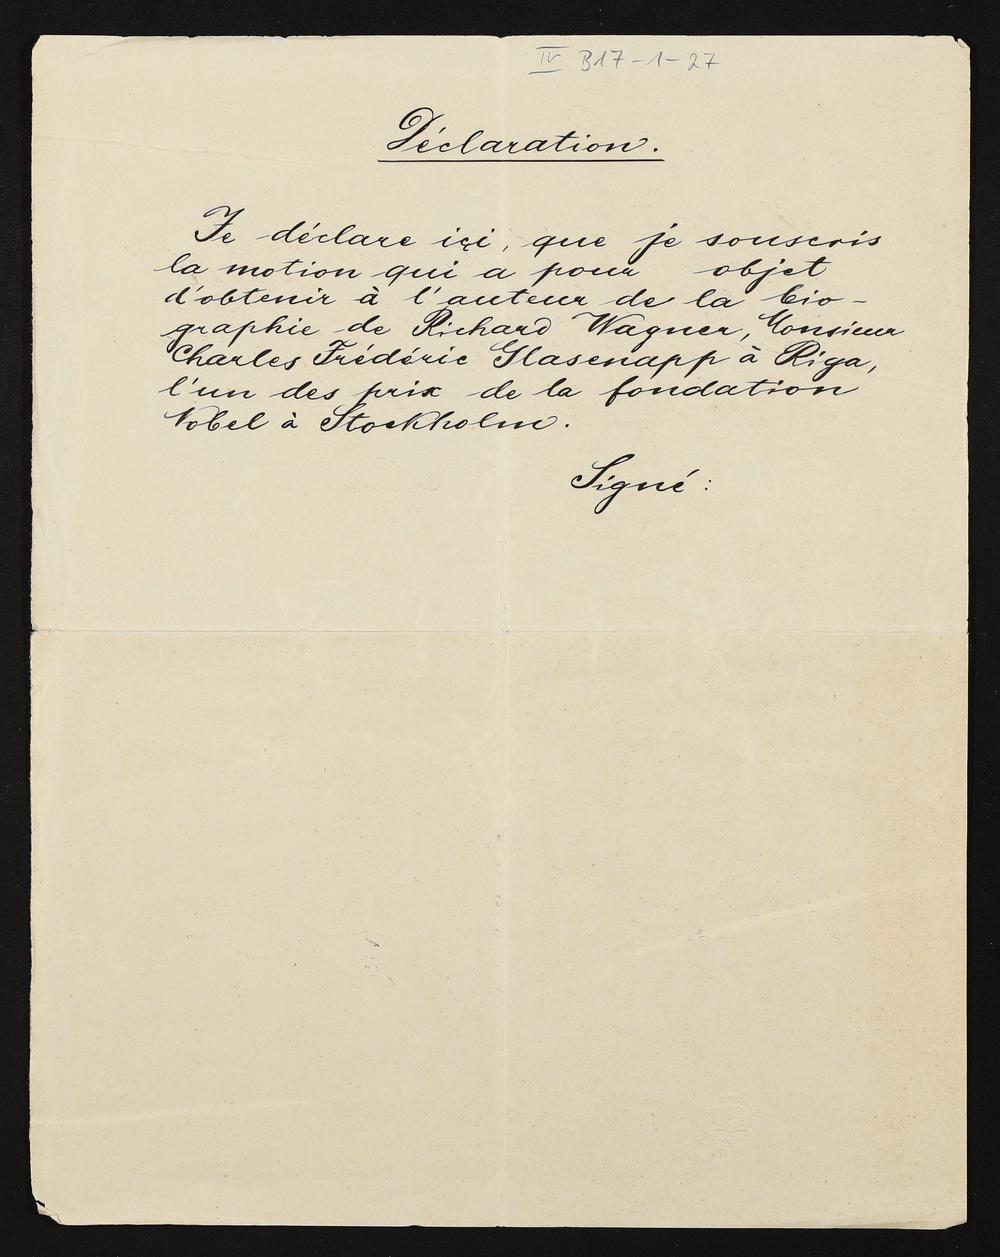 IV B17-1-27
Déclaration.
Je déclare içi, que je souscris
la motion qui a pour objet
d'obtenir à l'auteur de la bio-
graphie de Richard Wagner, Monsieur
Charles Frédéric Glasenapp à Riga,
l'un des prix de la fondation
Nobel à Stockholm.
Signé: